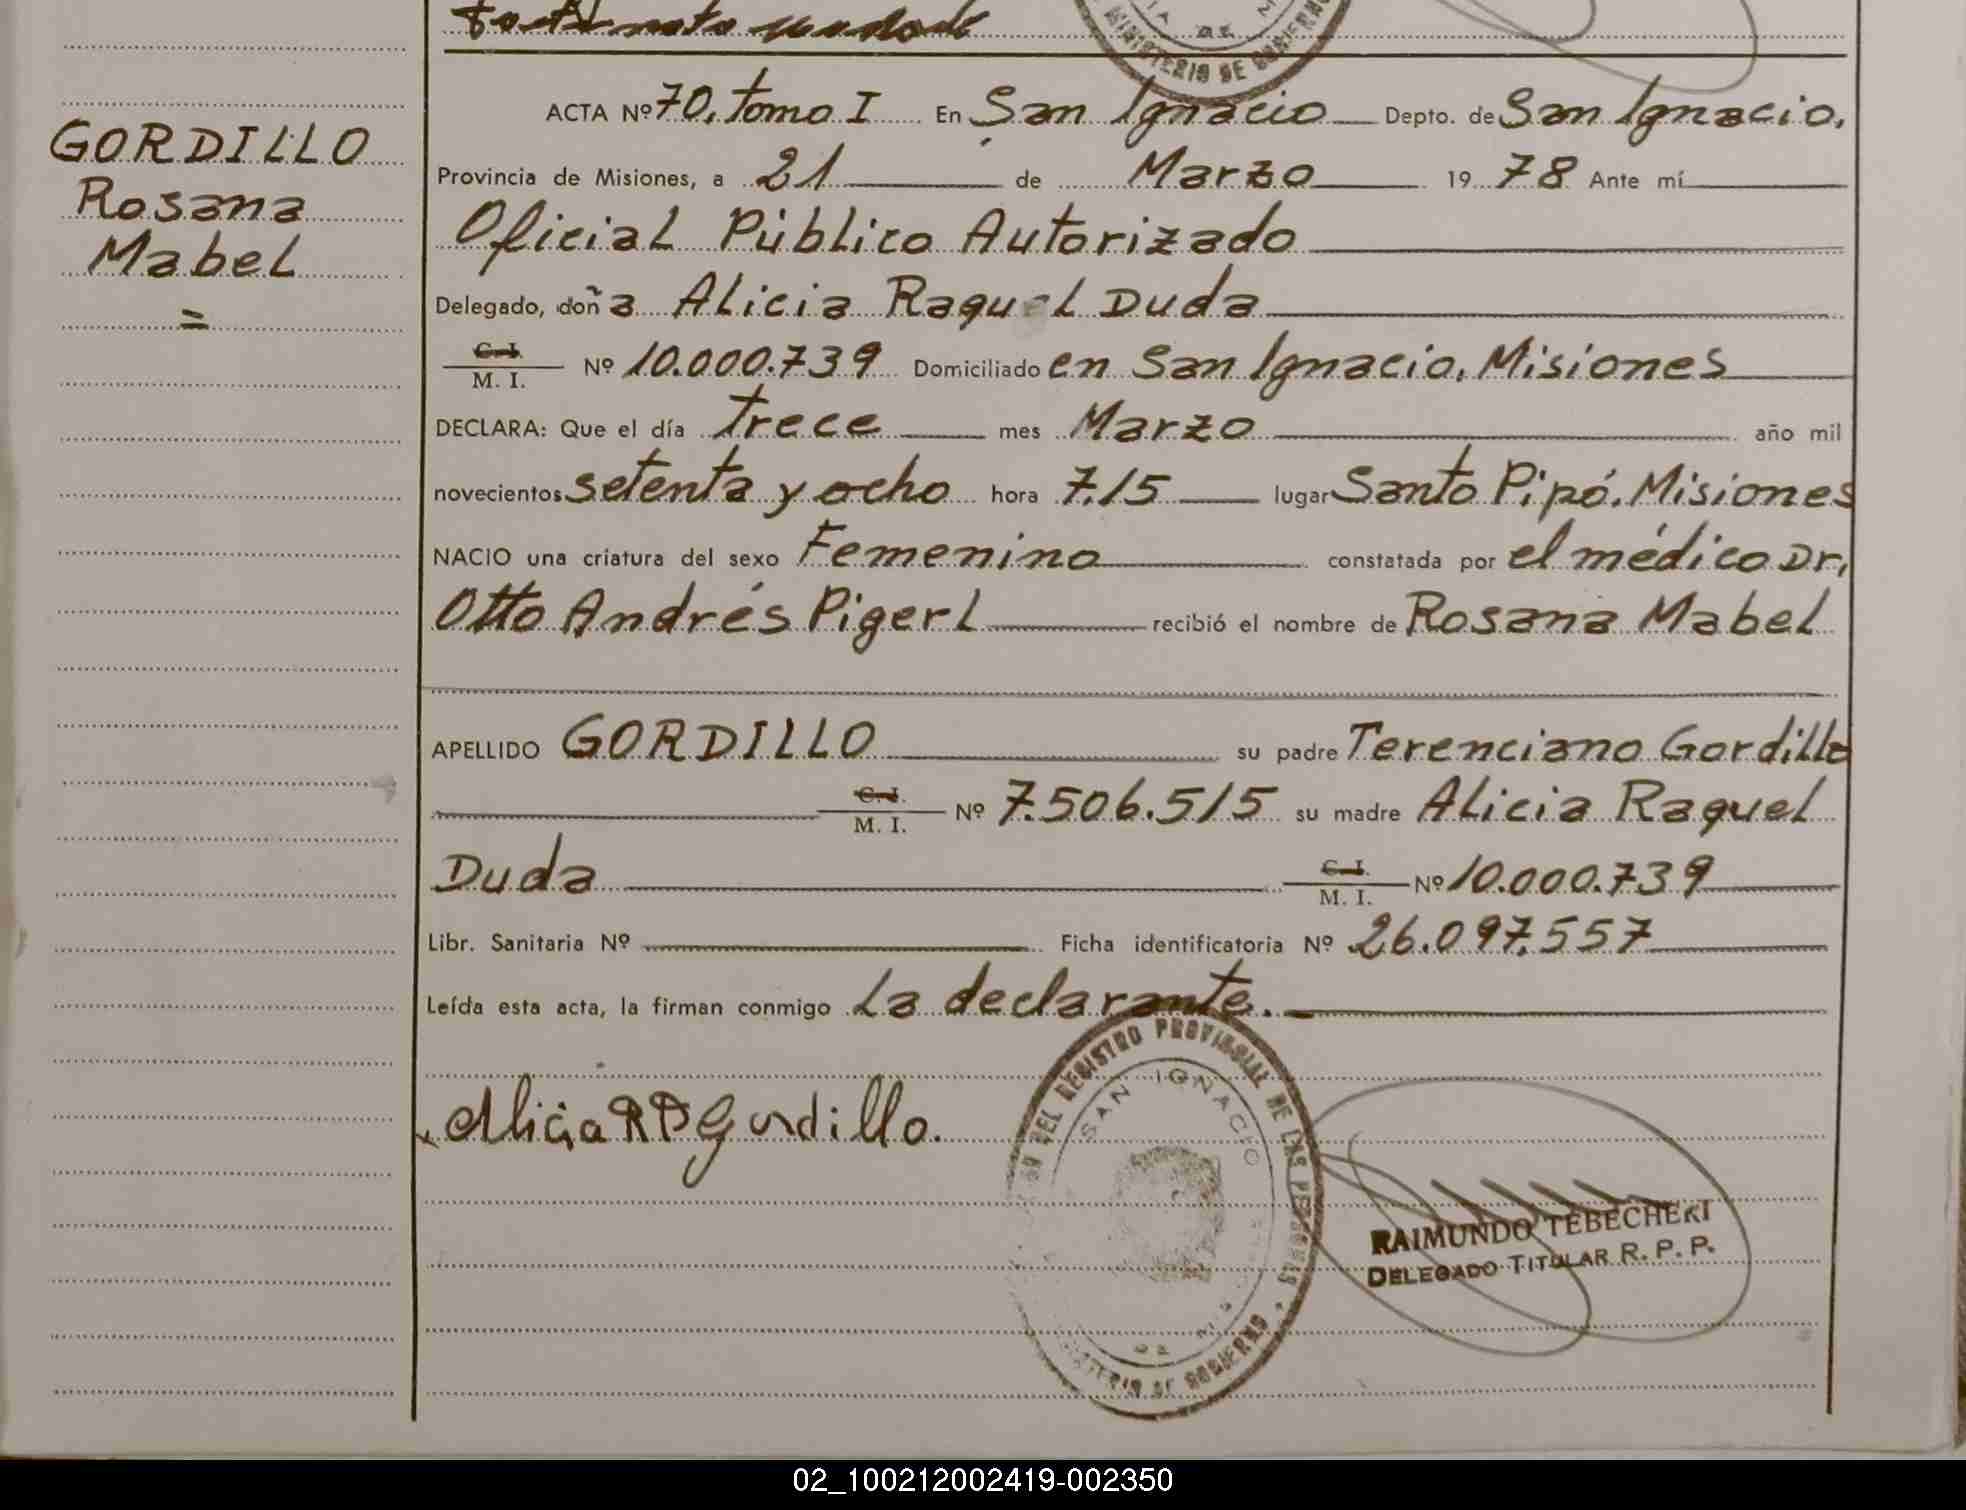 MINISTERIO DE GOBIERNO
GORDILLO
Rosana
Mabel
=
ACTA Nº 70, tomo I En San Ignacio Depto. de San Ignacio,
Provincia de Misiones, a 21 de Marzo 19 78 Ante mí
Oficial Público Autorizado
Delegado, doña Alicia Raquel Duda
C. I.
M. I. Nº 10.000.739 Domiciliado en San Ignacio, Misiones
DECLARA: Que el día trece mes Marzo año mil
novecientos setenta y ocho hora 7.15 lugar Santo Pipó. Misiones
NACIO una criatura del sexo Femenino constatada por el médico Dr.
Otto Andrés Pigerl recibió el nombre de Rosana Mabel
APELLIDO GORDILLO su padre Terenciano Gordillo
C. I.
M. I. Nº 7.506.515 su madre Alicia Raquel
Duda C. I.
M. I. Nº 10.000.739
Libr. Sanitaria Nº Ficha identificatoria Nº 26.097.557
Leída esta acta, la firman conmigo La declarante.
DEL REGISTRO PROVINCIAL DE LAS PERSONAS
SAN IGNACIO
MINISTERIO DE GOBIERNO
x Alicia R D Gordillo.
RAIMUNDO TEBECHERI
DELEGADO TITULAR R. P. P.
02_100212002419-002350